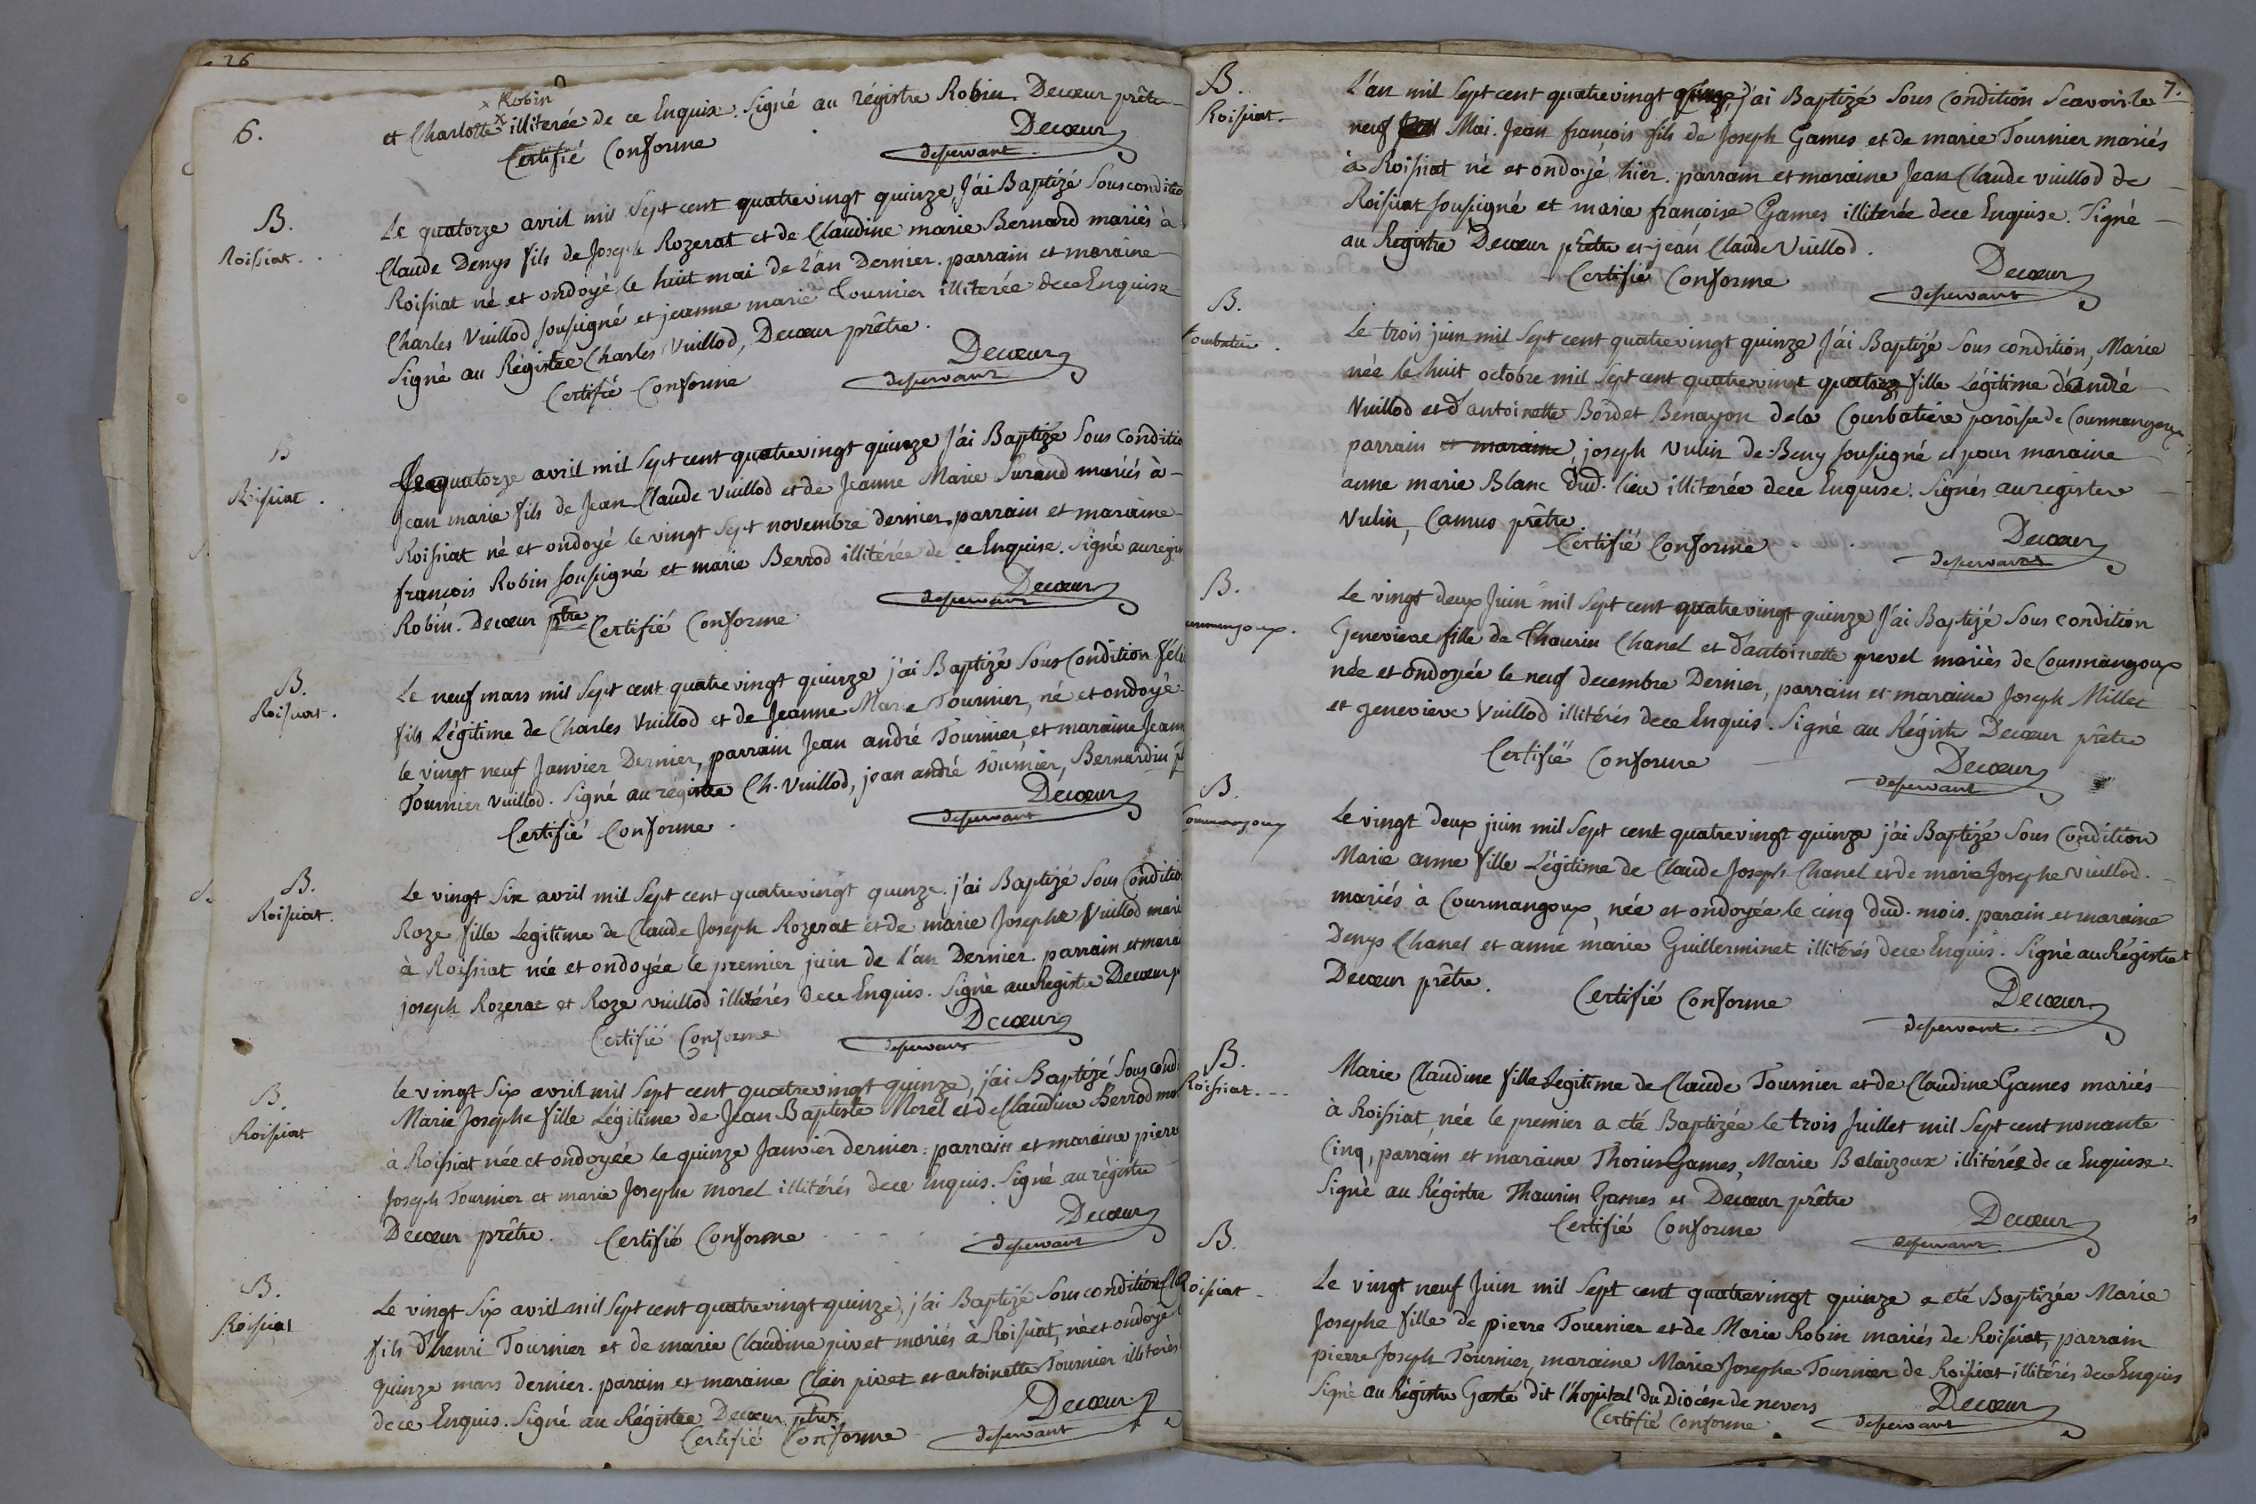 26
6.
x Robin
et Charlotte x illiterée de ce Enquise. Signé au régistre Robin. Decœur prêtre
Certifié Conforme
Decœur
desservant
B.
Roissiat.
Le quatorze avril mil Sept cent quatrevingt quinze, J'ai Baptizé Sous condito
Claude Denys fils de Joseph Rozerat et de Claudine marie Bernard mariés à
Roissiat né et ondoyé le huit mai de l'an Dernier. parrain et maraine
Charles Vuillod soussigné et jeanne marie Tournier illiterée de ce Enquise
Signé au Régistre Charles Vuillod, Decœur prêtre.
Certifié Conforme
Decœur
desservant
B
Roissiat.
Le quatorze avril mil Sept cent quatrevingt quinze J'ai Baptizé Sous Conditio
Jean marie fils de Jean Claude Vuillod et de Jeanne Marie Surand mariés à
Roissiat né et ondoyé le vingt Sept novembre dernier, parrain et maraine
françois Robin soussigné et marie Berrod illitérée de ce Enquise. Signé au regis
Robin. Decœur ptre
Certifié Conforme
Decœur
desservant
B.
Roissiat.
Le neuf mars mil Sept cent quatrevingt quinze j'ai Baptizé Sous Condition féli
fils Légitime de Charles Vuillod et de Jeanne Marie Tournier, né et ondoyé
le vingt neuf Janvier Dernier, parrain Jean andré Tournier, et maraine Jeann
Tournier Vuillod. Signé au régistre Ch. Vuillod, jean andré tournier, Bernardin p
Certifié Conforme.
Decœur
desservant
B.
Roissiat.
Le vingt Six avril mil Sept cent quatrevingt quinze. j'ai Baptizé Sous Conditio
Roze fille Légitime de Claude Joseph Rozerat et de marie Josephe Vuillod mari
à Roissiat née et ondoyée le premier juin de l'an Dernier. parrain et marai
joseph Rozerat et Roze vuillod illitérés de ce Enquis. Signé au Régistre Decœur p
Certifié Conforme
Decœur
desservant
B.
Roissiat
le vingt Six avril mil Sept cent quatrevingt quinze, j'ai Baptizé Sous condi
Marie Josephe fille Légitime de Jean Baptiste Morel et de Claudine Berrod mar
à Roissiat née et ondoyée le quinze Janvier dernier. parrain et maraine pierre
Joseph Tournier et marie Josephe morel illitérés de ce Enquis. Signé au régistre
Decœur prêtre.
Certifié Conforme
Decœur
desservant
B.
Roissiat
Le vingt Six avril mil Sept cent quatrevingt quinze, j'ai Baptizé Sous condition
fils d'henri Tournier et de marie Claudine pivet mariés à Roissiat, né et ondoyé
quinze mars dernier. parain et maraine Clair pivet et antoinette Tournier illitérés
de ce Enquis. Signé au Régistre Decœur, ptre
Certifié Conforme
Decœur
desservant
7.
B.
Roissiat.
L'an mil Sept cent quatrevingt quinze, j'ai Baptizé Sous Condition Scavoir le
neuf Mai. Jean françois fils de Joseph Games et de marie Tournier mariés
à Roissiat né et ondoyé hier. parrain et maraine Jean Claude vuillod de
Roissiat soussigné et marie françoise Games illiterée de ce Enquise. Signé
au Registre Decœur prêtre et jean Claude Vuillod.
Certifié Conforme
Decœur
desservant
B.
Le trois juin mil Sept cent quatrevingt quinze J'ai Baptizé Sous condition, Marie
née le huit octobre mil Sept cent quatrevingt quatorze, fille Légitime d'andré
Vuillod et d'antoinette Bordet Benayon de la Courbatiere paroisse de Courmangoux
parrain et maraine, joseph Vulin de Beny soussigné et pour maraine
anne marie Blanc dud. lieu illiterée de ce Enquise. Signés au registre
Vulin, Camus prêtre
Certifié Conforme
Decœur
desservant
B.
Le vingt deux Juin mil Sept cent quatrevingt quinze J'ai Baptizé Sous condition
Genevieve fille de Thaurin Chanel et d'antoinette prevel mariés de Courmangoux
née et ondoyée le neuf decembre Dernier, parrain et maraine Joseph Millet
et genevieve Vuillod illitérés de ce Enquis. Signé au Régistre Decœur prêtre
Certifié Conforme
Decœur
desservant
B.
Courmangoux
Le vingt deux juin mil Sept cent quatrevingt quinze j'ai Baptizé Sous Condition
Marie anne fille Légitime de Claude Joseph Chanel et de marie Josephe vuillod.
mariés à Courmangoux, née et ondoyée le cinq dud. mois. parain et maraine
Denys Chanel et anne marie Guillerminet illitérés de ce Enquis. Signé au Régistre
Decœur prêtre.
Certifié Conforme
Decœur
desservant
B.
Roissiat.
Marie Claudine fille Legitime de Claude Tournier et de Claudine Games mariés
à Roissiat née le premier a été Baptizée le trois Juillet mil Sept cent nonante
Cinq, parrain et maraine Thorin Games, Marie Balaizoux illitérée de ce Enquise
Signé au Régistre Thaurin Games et Decœur prêtre
Certifié Conforme
Decœur
desservant
B.
Roissiat
Le vingt neuf Juin mil Sept cent quatrevingt quinze a été Baptizée Marie
Josephe fille de pierre Tournier et de Marie Robin mariés de Roissiat, parrain
pierre Joseph Tournier, maraine Marie Josephe Tournier de Roissiat illitérés de ce Enquis
Signé au Régistre Gasté dit l'hopital du Diocèse de nevers
Certifié Conforme.
Decœur
desservant